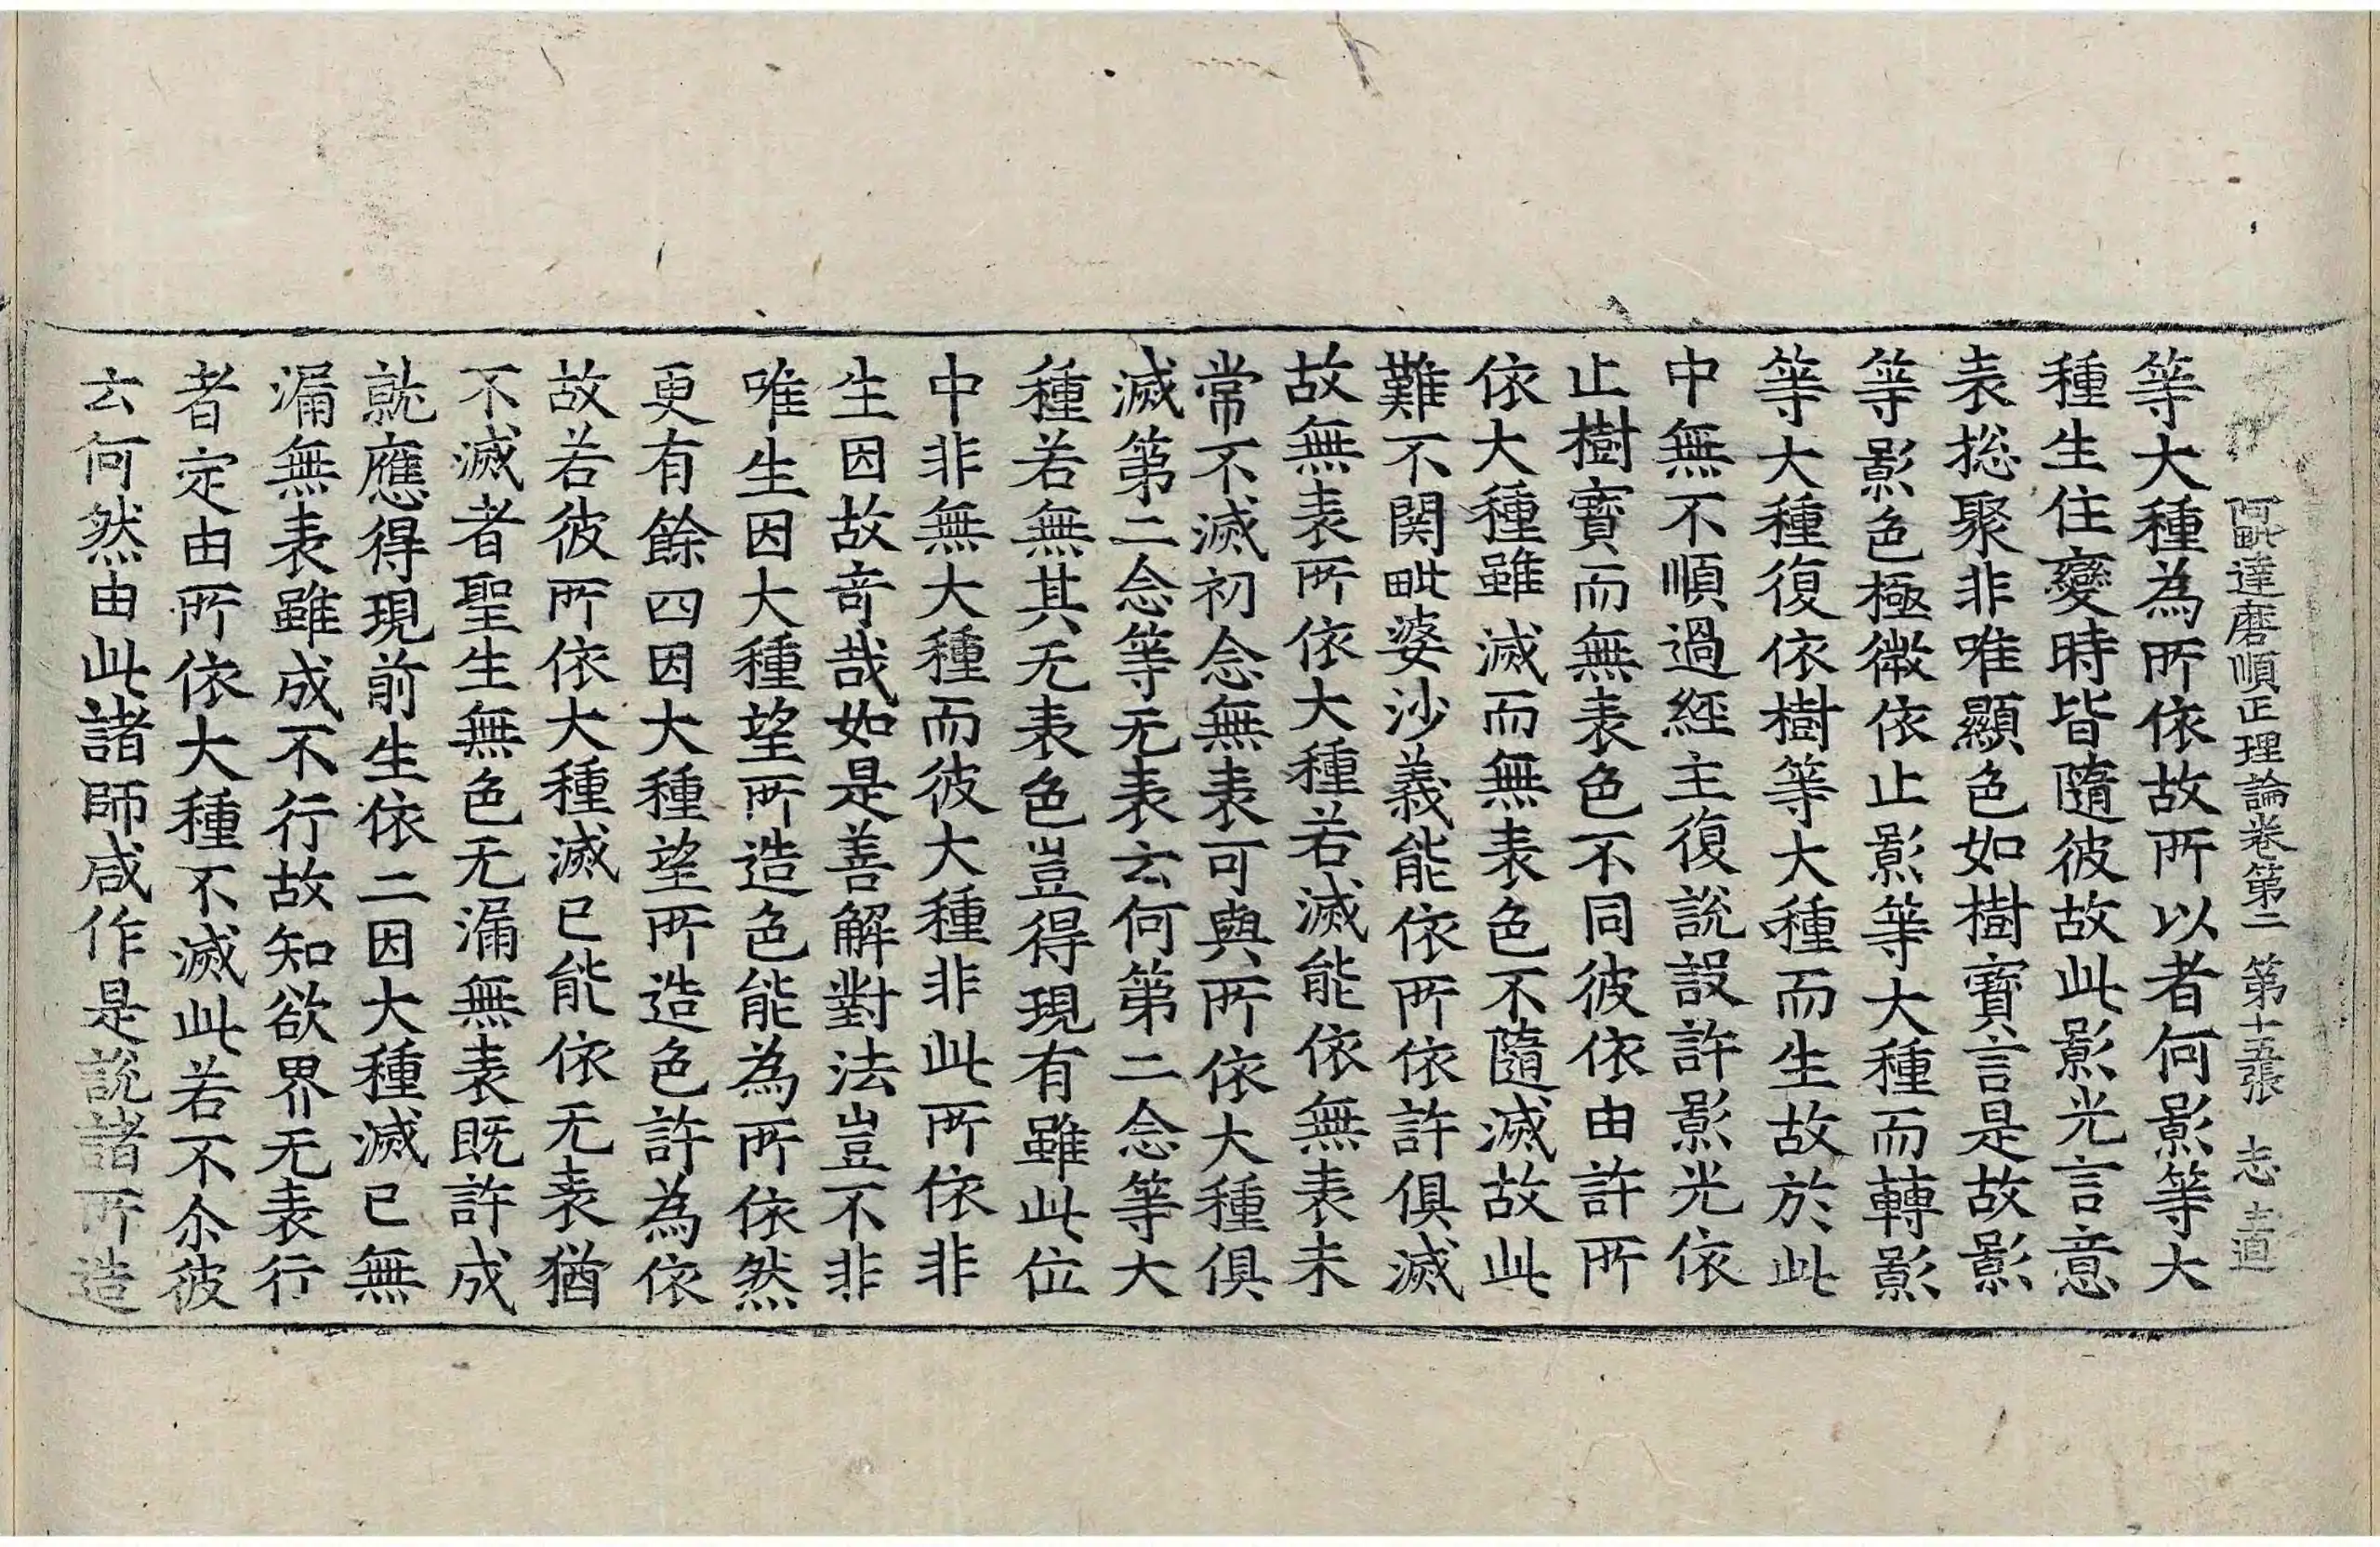 阿毗達磨順正理論卷第二 第十五張 志
等大種為所依故所以者何影等大
種生住變時皆隨彼故此影光言意
表捴聚非唯顯色如樹寶言是故影
等影色極微依止影等大種而轉影
等大種復依樹等大種而生故於此
中無不順過經主復說設許影光依
止樹寶而無表色不同彼依由許所
依大種雖滅而無表色不隨滅故此
難不関毗婆沙義能依所依許俱滅
故無表所依大種若滅能依無表未
常不滅初念無表可與所依大種俱
滅第二念等无表云何第二念等大
種若無其无表色豈得現有雖此位
中非無大種而彼大種非此所依非
生因故奇哉如是善解對法豈不非
唯生因大種望所造色能為所依然
更有餘四因大種望所造色許為依
故若彼所依大種滅已能依无表猶
不滅者聖生無色无漏無表既許成
就應得現前生依二因大種滅已無
漏無表雖成不行故知欲界无表行
者定由所依大種不滅此若不尒彼
云何然由此諸師咸作是說諸所造